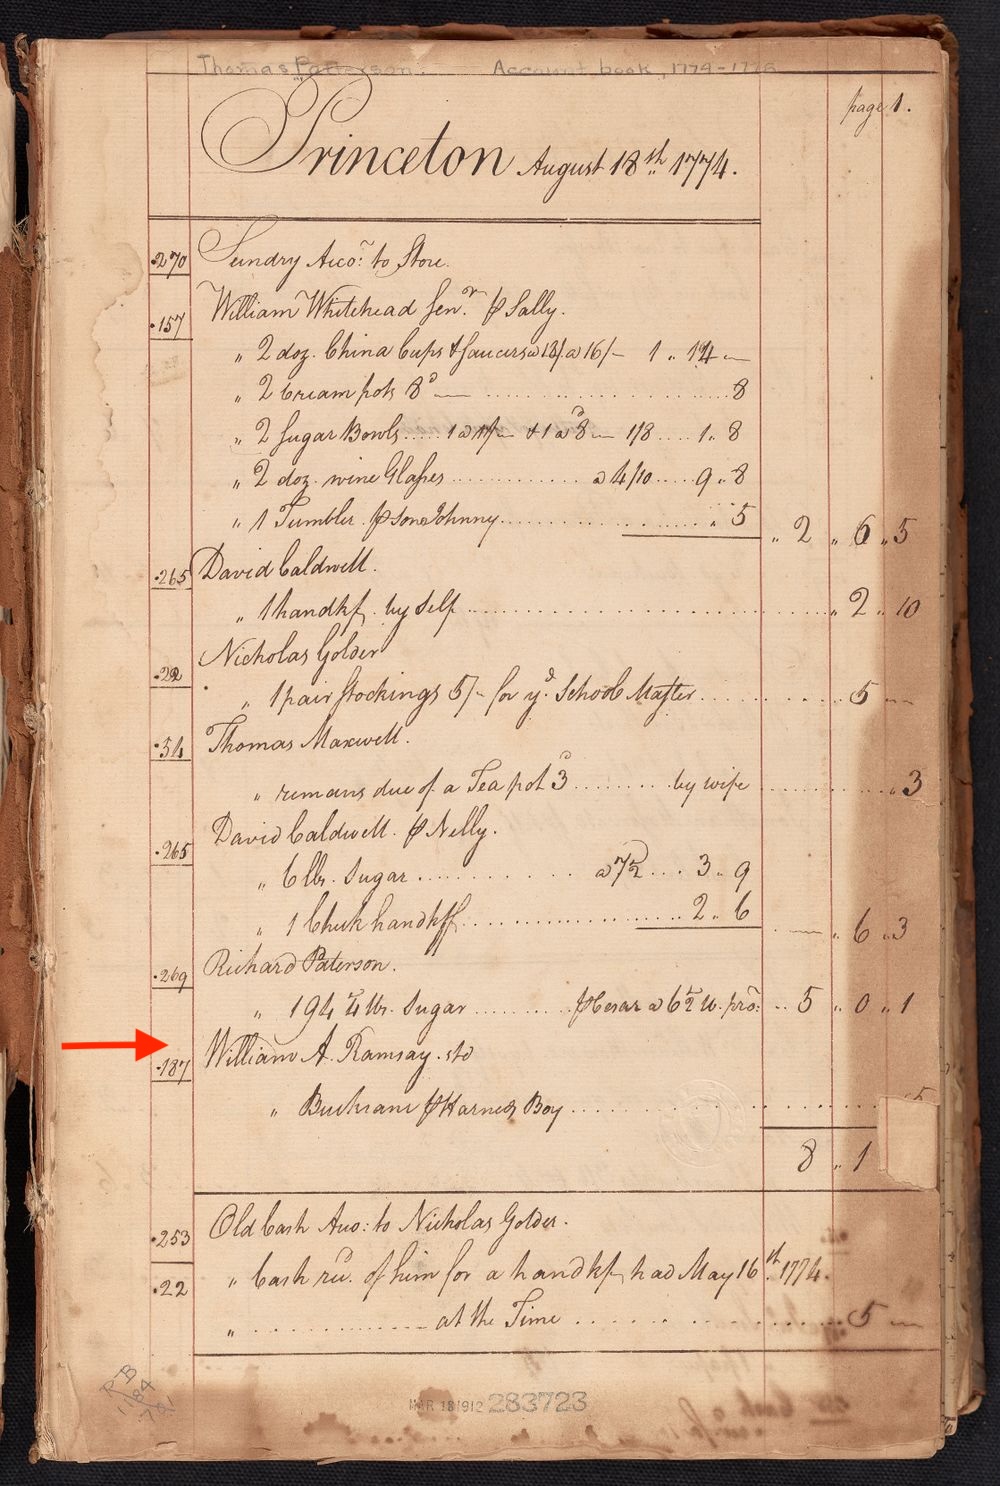 Thomas Patterson. Account book, 1774-1776
page 1.
Princeton August 18th 1774.
270 Sundry Acco: to Store.
157 William Whitehead Senr. ⅌ Sally.
" 2 doz. China Cups & Saucers a 18/ a 16/- 1 " 14 —
" 2 Cream pots 8d — 8
" 2 Sugar Bowls 1 a 1/- & 1 a 8d — 1/8 1 " 8
" 2 doz. wine Glasses a 4/10 9 " 8
" 1 Tumbler ⅌ son Johnny " 5 " 2 " 6 " 5
265 David Caldwell.
" 1 handkf. by Self " 2 " 10
22 Nicholas Golder
" 1 pair Stockings 5/- for ye. School Master 5 —
54 Thomas Maxwell.
" remans due of a Tea pot 3d by wife " 3
265 David Caldwell. ⅌ Nelly.
" 6 lbs. Sugar a 7½ 3 " 9
" 1 Check handkff 2 " 6 — " 6 " 3
269 Richard Paterson.
" 194 lbs. Sugar ⅌ Cesar a 5 " 0 " 1
187 William A. Ramsay
" Buckram ⅌ Harness Boy 5
8 " 1
253 Old Cash Acco: to Nicholas Golder.
22 " Cash rec. of him for a handkf, had May 16th. 1774.
" at the Time 5 —
RB
1184
781
MAR 18 1912 283723